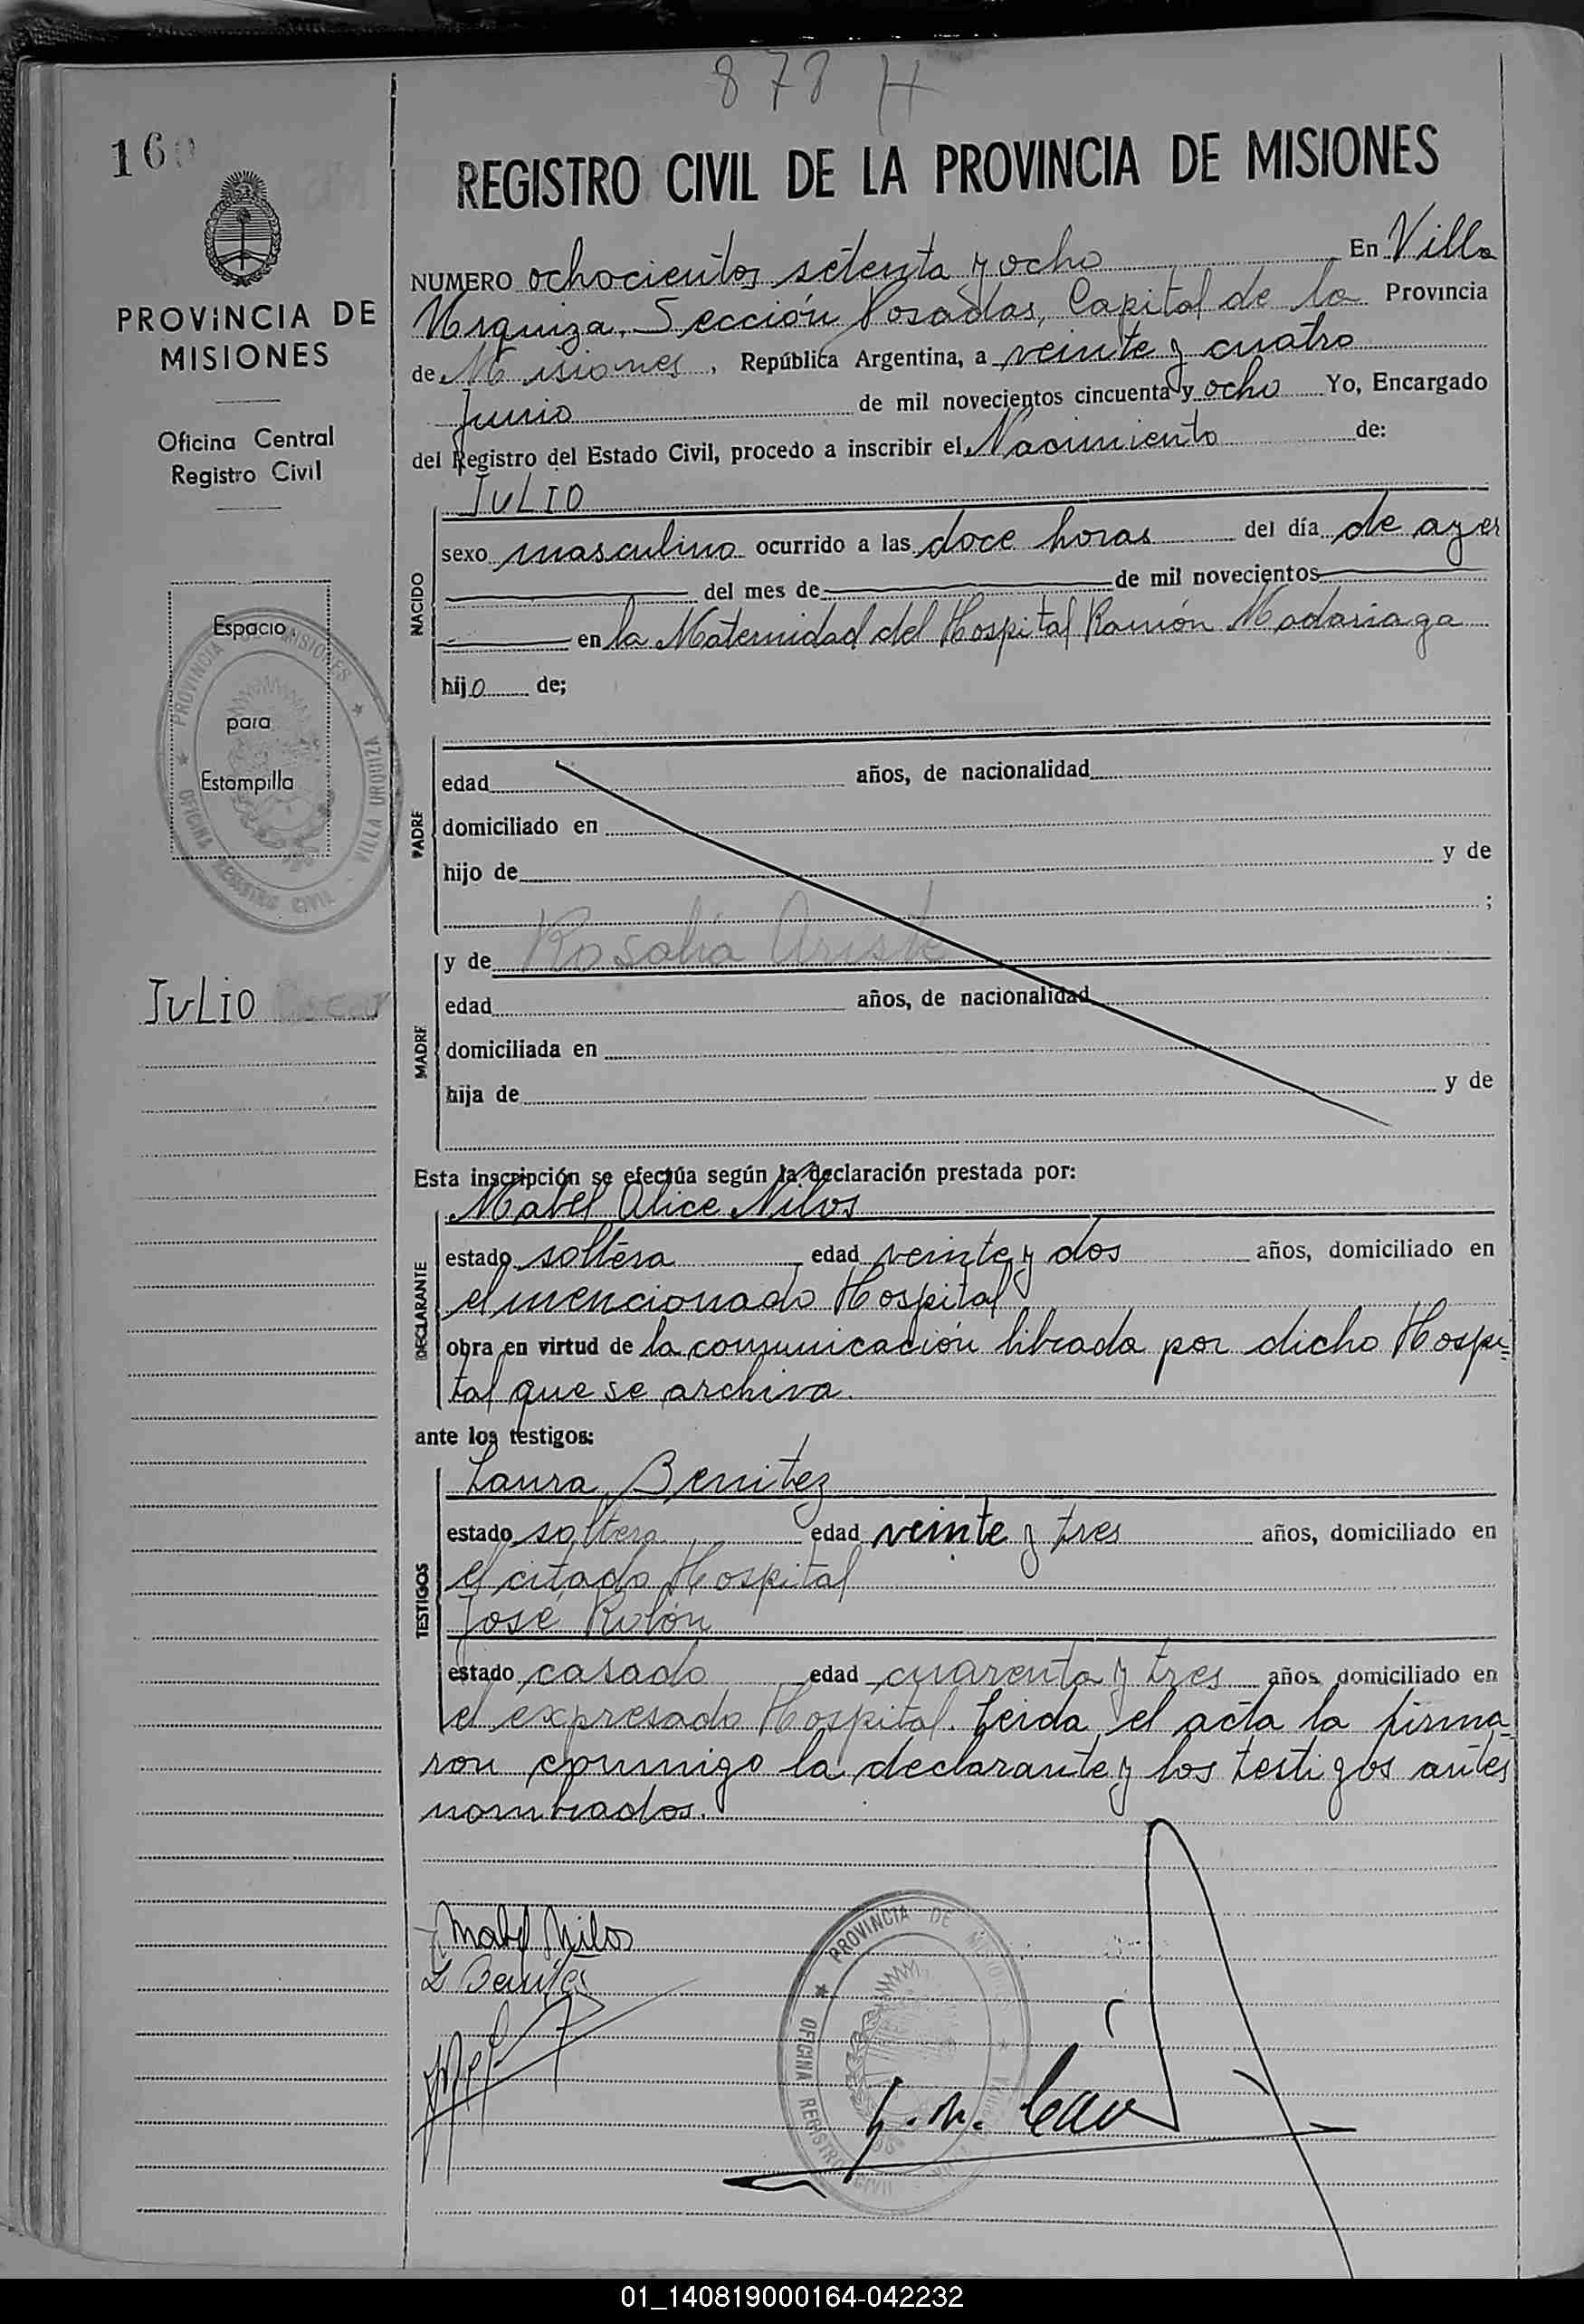 878 H
16
REGISTRO CIVIL DE LA PROVINCIA DE MISIONES
PROVINCIA DE
MISIONES
Oficina Central
Registro Civil
Espacio
para
Estampilla
PROVINCIA MISIONES
OFICINA REGISTRO CIVIL - VILLA URQUIZA
JULIO
NUMERO ochocientos setenta y ocho En Villa
Urquiza, Sección Posadas, Capital de la Provincia
de Misiones, República Argentina, a veinte y cuatro
Junio de mil novecientos cincuenta y ocho Yo, Encargado
del Registro del Estado Civil, procedo a inscribir el Nacimiento de:
NACIDO
JULIO
sexo masculino ocurrido a las doce horas del día de ayer
del mes de de mil novecientos
en la Maternidad del Hospital Ramón Madariaga
hijo de;
PADRE
edad años, de nacionalidad
domiciliado en
hijo de y de
;
MADRE
y de Rosalia
edad años, de nacionalidad
domiciliada en
hija de y de
Esta inscripción se efectúa según la declaración prestada por:
DECLARANTE
Mabel Alice Nilos
estado soltera edad veinte y dos años, domiciliado en
el mencionado Hospital
obra en virtud de la comunicación librada por dicho Hospi=
tal que se archiva.
ante los testigos:
TESTIGOS
Laura Benitez
estado soltera edad veinte y tres años, domiciliado en
el citado Hospital
José Rolón
estado casado edad cuarenta y tres años domiciliado en
el expresado Hospital. Leida el acta la firma=
ron conmigo la declarante y los testigos antes
nombrados.
Mabel Nilos
L Benítes
PROVINCIA DE MISIONES
OFICINA REGISTRO CIVIL
01_140819000164-042232